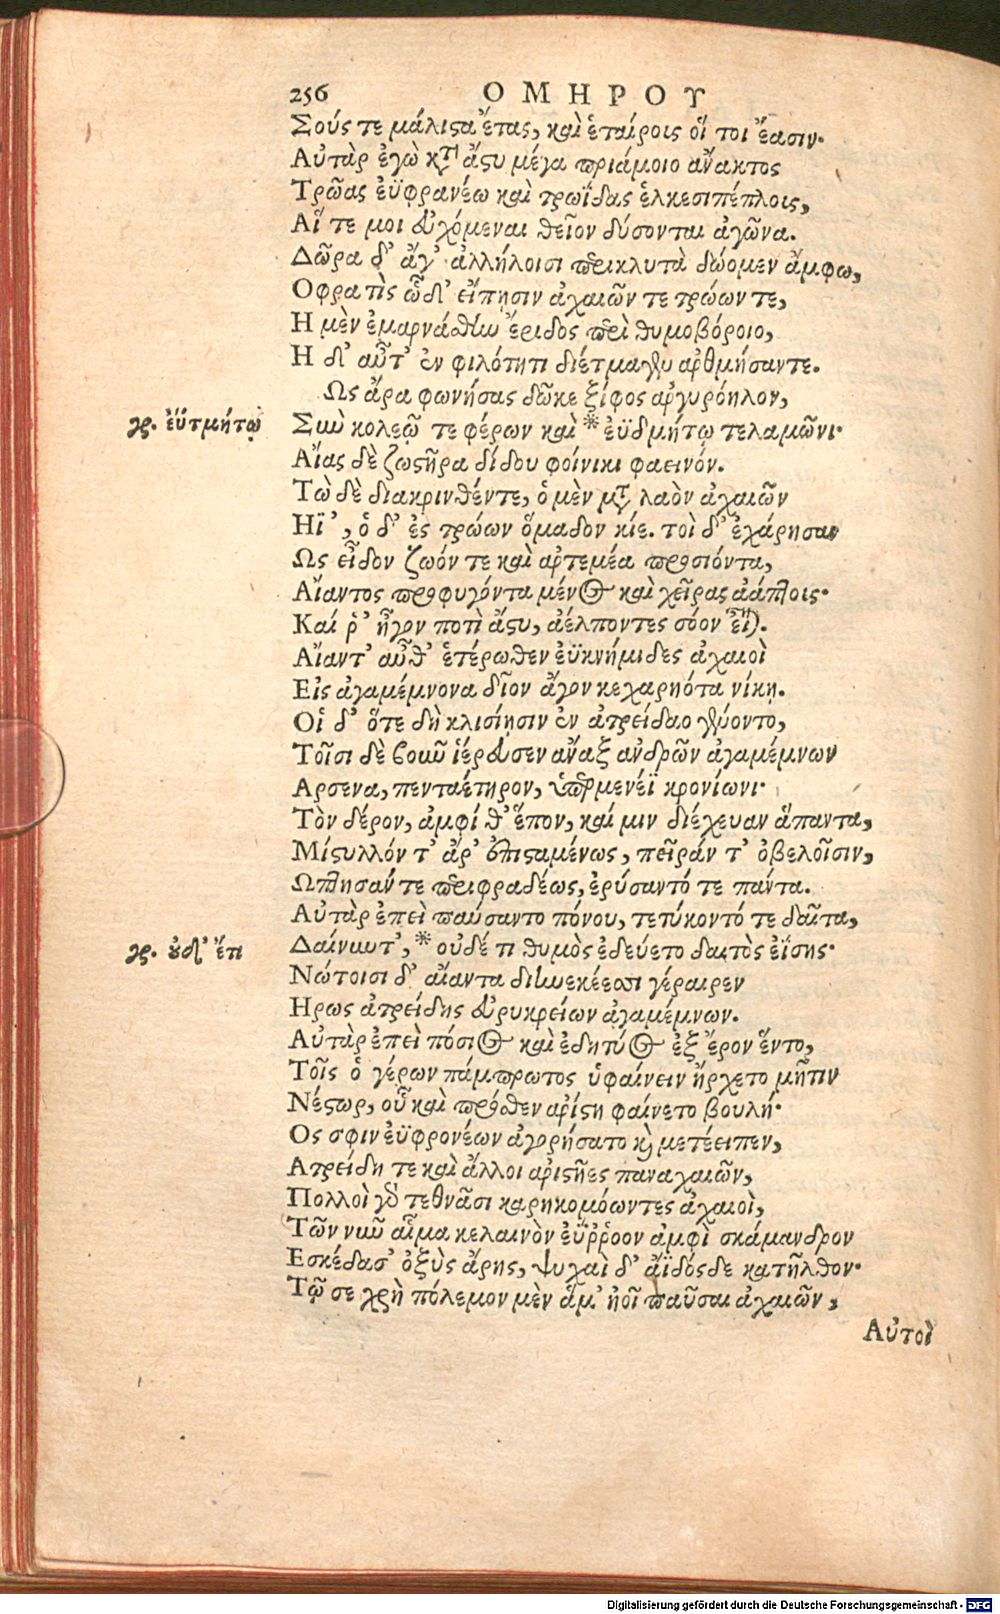 256 ΟΜΗΡΟΥ
Σούς τε μάλιϛα ἔτας, καὶ ἑταίροις οἵ τοι ἔασιν·
Αὐτὰρ ἐγὼ κτ̀ ἄϛυ μέγα πριάμοιο ἄνακτος
Τρῶας ἐϋφρανέω καὶ τρωΐδας ἑλκεσιπέπλοις,
Αἵ τε μοι εὐχόμεναι θεῖον δύσονται ἀγῶνα.
Δῶρα δ' ἄγ' ἀλλήλοισι περικλυτὰ δώομεν ἄμφω,
Οφρα τὶς ὧδ' εἴπῃσιν ἀχαιῶν τε τρώων τε,
Η μὲν ἐμαρνάσθην ἔριδος περὶ θυμοβόροιο,
Η δ' αὖτ' ἐν φιλότητι διέτμαγεν ἀρθμήσαντε.
Ως ἄρα φωνήσας δῶκε ξίφος ἀργυρόηλον,
γρ. ἐϋτμήτῳ Σὺν κολεῷ τε φέρων καὶ * ἐϋδμήτῳ τελαμῶνι·
Αἴας δὲ ζωϛῆρα δίδου φοίνικι φαεινόν.
Τὼ δὲ διακρινθέντε, ὁ μὲν μτ̀ λαὸν ἀχαιῶν
Ηϊ', ὁ δ' ἐς τρώων ὅμαδον κίε. τοὶ δ' ἐχάρησαν
Ως εἶδον ζωόν τε καὶ ἀρτεμέα προσιόντα,
Αἴαντος προφυγόντα μένος καὶ χεῖρας ἀάπτοις·
Καί ῥ' ἦγον ποτὶ ἄϛυ, ἀέλποντες σόον εἶναι.
Αἴαντ' αὖθ' ἑτέρωθεν ἐϋκνήμιδες ἀχαιοὶ
Εἰς ἀγαμέμνονα δῖον ἄγον κεχαρηότα νίκῃ.
Οἱ δ' ὅτε δὴ κλισίῃσιν ἐν ἀτρείδαο γένοντο,
Τοῖσι δὲ βοῦν ἱέρευσεν ἄναξ ἀνδρῶν ἀγαμέμνων
Αρσενα, πενταέτηρον, ὑπερμενέϊ κρονίωνι·
Τὸν δέρον, ἀμφί θ' ἕπον, καί μιν διέχευαν ἅπαντα,
Μίϛυλλόν τ' ἄρ' ἐπιϛαμένως, πεῖράν τ' ὀβελοῖσιν,
Ωπτησάν τε περιφραδέως, ἐρύσαντό τε πάντα.
Αὐτὰρ ἐπεὶ παύσαντο πόνου, τετύκοντό τε δαῖτα,
γρ. οὐδ' ἔτι Δαίνυντ', * οὐδέ τι θυμὸς ἐδεύετο δαιτὸς ἐΐσης·
Νώτοισι δ' αἴαντα διηνεκέεσσι γέραιρεν
Ηρως ἀτρείδης εὐρυκρείων ἀγαμέμνων.
Αὐτὰρ ἐπεὶ πόσιος καὶ ἐδητύος ἐξ ἔρον ἕντο,
Τοῖς ὁ γέρων πάμπρωτος ὑφαίνειν ἤρχετο μῆτιν
Νέϛωρ, οὗ καὶ πρόσθεν ἀρίϛη φαίνετο βουλή·
Ος σφιν ἐϋφρονέων ἀγορήσατο καὶ μετέειπεν,
Ατρείδη τε καὶ ἄλλοι ἀριϛῆες παναχαιῶν,
Πολλοὶ γὰρ τεθνᾶσι καρηκομόωντες ἀχαιοὶ,
Τῶν νῦν αἷμα κελαινὸν ἐΰῤῥοον ἀμφὶ σκάμανδρον
Εσκέδασ' ὀξὺς ἄρης, ψυχαὶ δ' ἄϊδόσδε κατῆλθον·
Τῷ σε χρὴ πόλεμον μὲν ἅμ' ἠοῖ παῦσαι ἀχαιῶν,
Αὐτοὶ
Digitalisierung gefördert durch die Deutsche Forschungsgemeinschaft - DFG